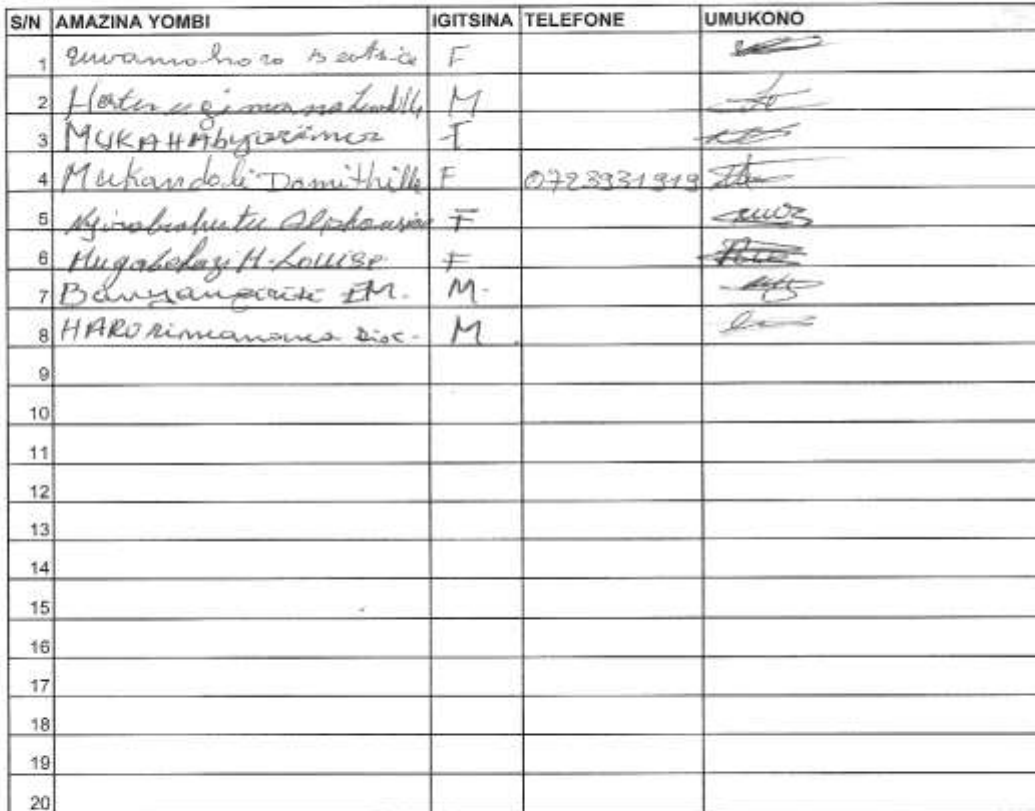 S/N AMAZINA YOMBI IGITSINA TELEFONE UMUKONO
1 Uwamahoro Beatrice F
2 M
3 MUKAHAbyarimana F
4 Mukandoli Domithille F 0723931919
5 Nyirabuhutu Alphonsine F
6 Mugabekazi M-Louise F
7 M-
8 HARORimana M
9
10
11
12
13
14
15
16
17
18
19
20